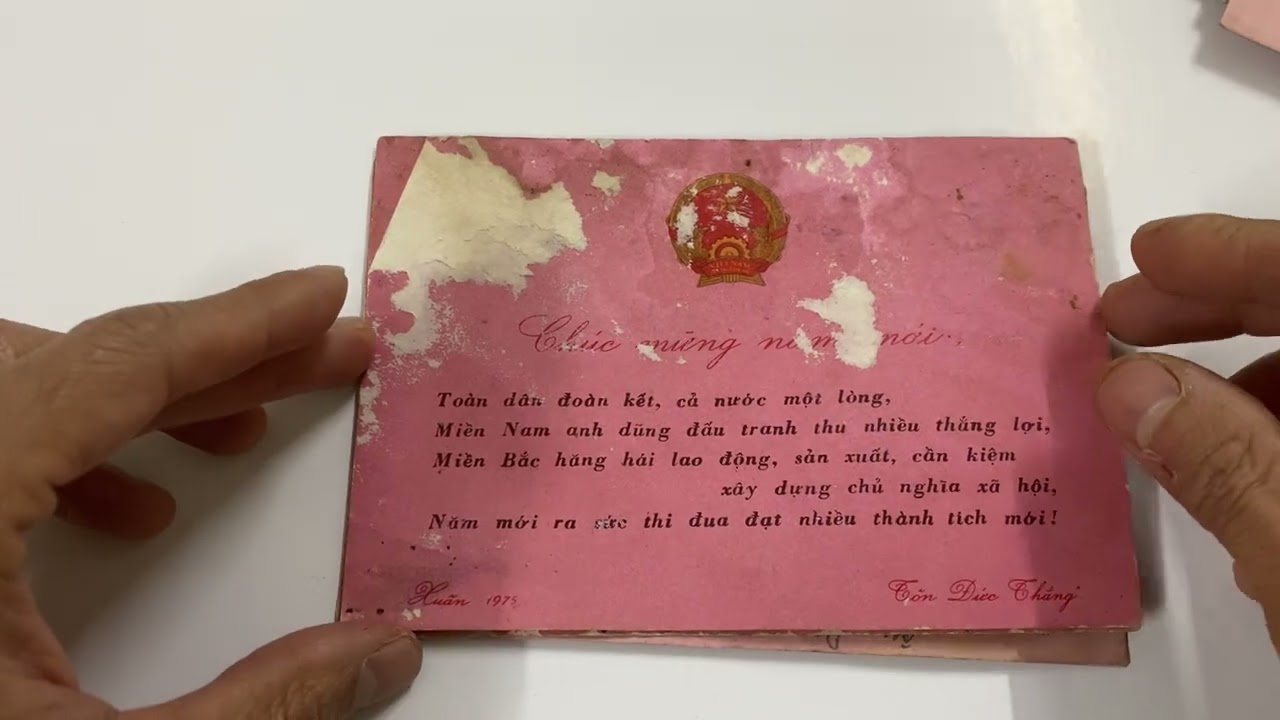 VIỆT NAM
Chúc mừng năm mới
Toàn dân đoàn kết, cả nước một lòng,
Miền Nam anh dũng đấu tranh thu nhiều thắng lợi,
Miền Bắc hăng hái lao động, sản xuất, cần kiệm
xây dựng chủ nghĩa xã hội,
Năm mới ra sức thi đua đạt nhiều thành tích mới!
Xuân 1975
Tôn Đức Thắng